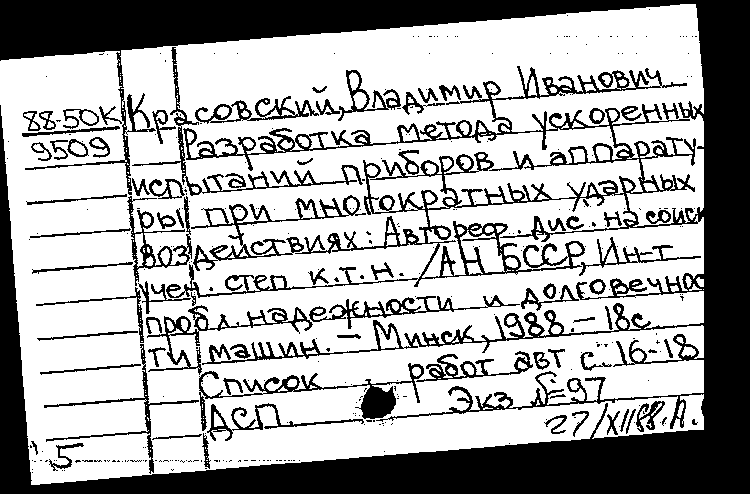 88-50К Красовский, Владимир Иванович
9509 Разработка метода ускоренных
испытаний приборов и аппарату-
ры при многократных ударных
воздействиях: Автореф. дис. на соиск
учен. степ к.т.н. /АН БССР, Ин-т
пробл. надежности и долговечнос
ти машин. – Минск, 1988. – 18с
Список работ авт с. 16-18
ДСП. Экз №97
27/XII88. Л.
5